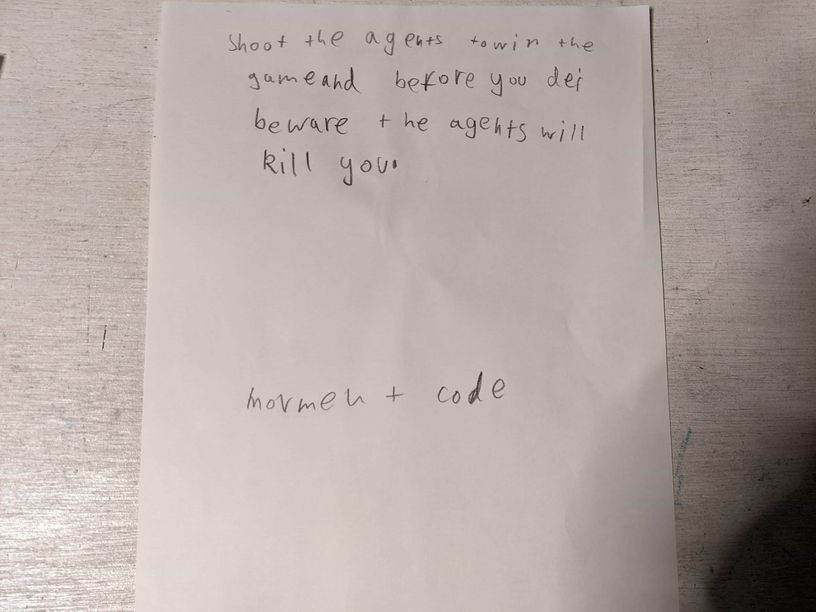 Shoot the agents towin the
gameand before you dei
beware the agents will
kill you.
movment code